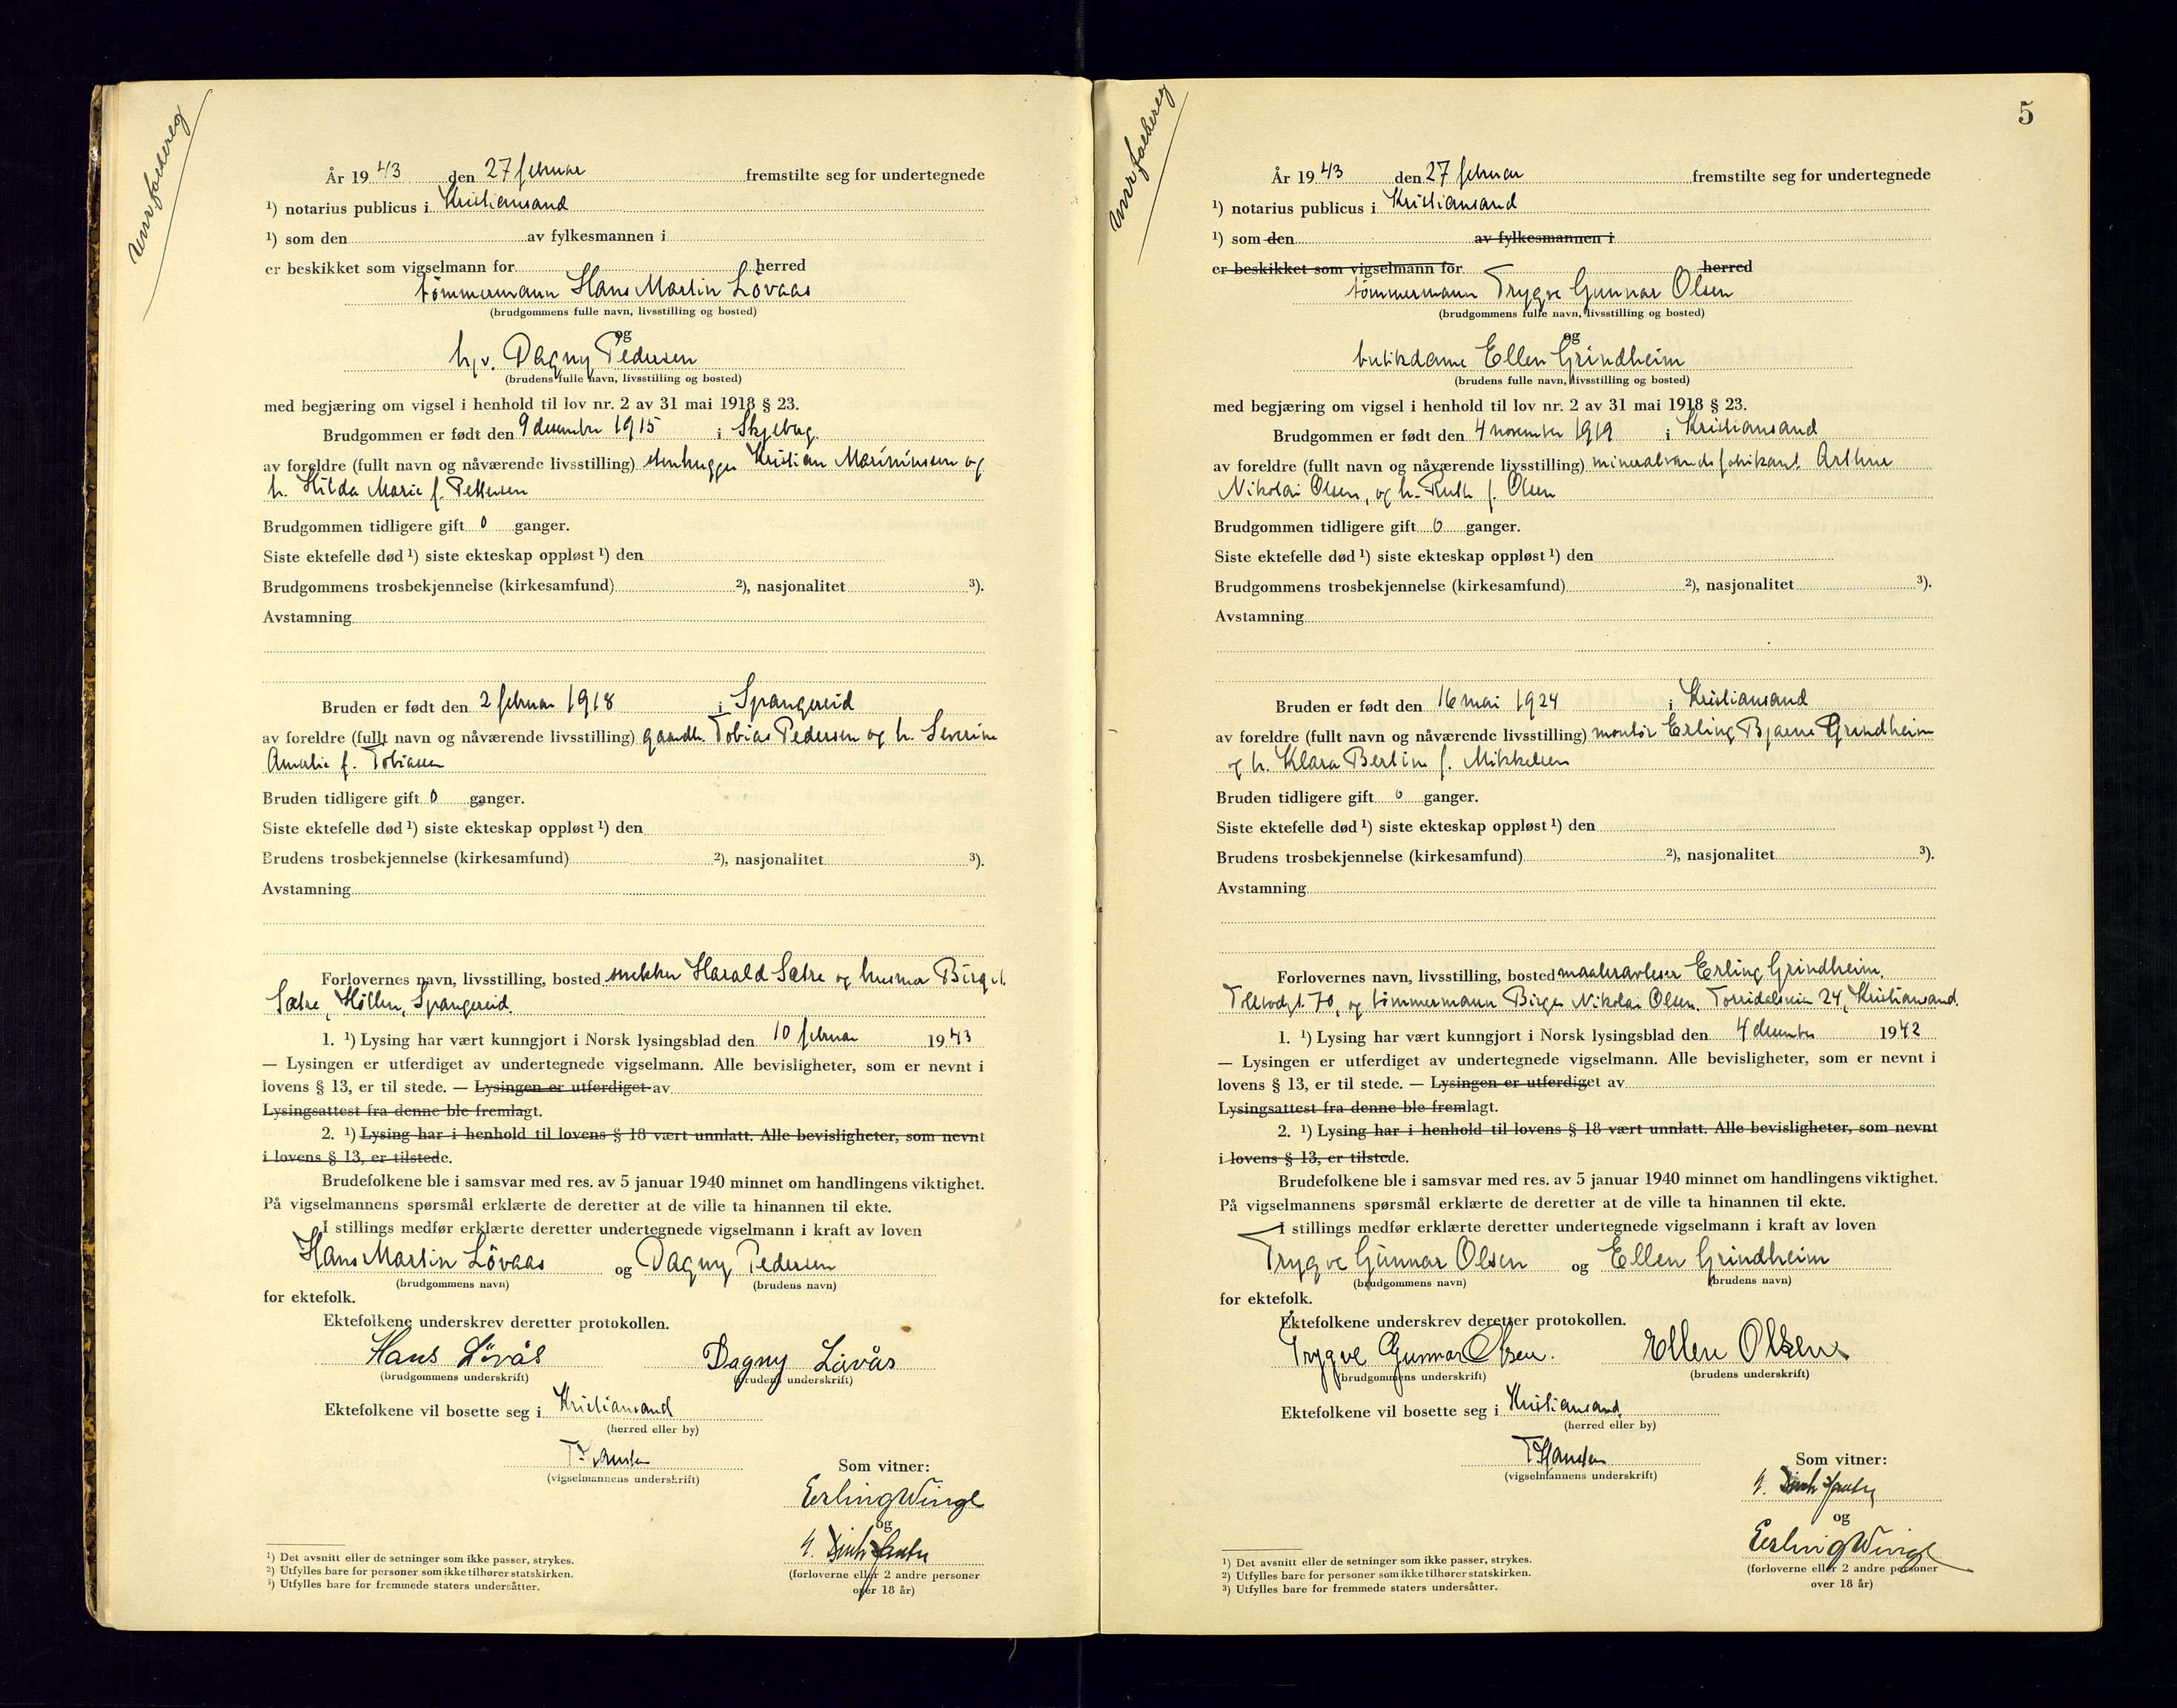 År 1943 den 27 februar fremstilte seg for undertegnede
¹) notarius publicus i Kristiansand
¹) som den av fylkesmannen i
er beskikket som vigselmann for herred
tømmermann Hans Martin Lövaas
(brudgommens fulle navn, livsstilling og bosted)
og
hjv. Dagny Pedersen
(brudens fulle navn, livsstilling og bosted)
med begjæring om vigsel i henhold til lov nr. 2 av 31 mai 1918 § 23.
Brudgommen er født den 9 desember 1915 i Skjeberg
av foreldre (fullt navn og nåværende livsstilling) stenhugger Kristian Marininssen og
h. Hilda Marie f. Pettersen
Brudgommen tidligere gift 0 ganger.
Siste ektefelle død ¹) siste ekteskap oppløst ¹) den
Brudgommens trosbekjennelse (kirkesamfund) ²), nasjonalitet ³).
Avstamning
Bruden er født den 2 februar 1918 i Spangereid
av foreldre (fullt navn og nåværende livsstilling) gaardbr. Tobias Pedersen og h. Severine
Amalie f. Tobiassen
Bruden tidligere gift 0 ganger.
Siste ektefelle død ¹) siste ekteskap oppløst ¹) den
Brudens trosbekjennelse (kirkesamfund) ²), nasjonalitet ³).
Avstamning
Forlovernes navn, livsstilling, bosted snekker Harald Sætre og husmor Birgit
Sætre, Höllen, Spangereid.
1. ¹) Lysing har vært kunngjort i Norsk lysingsblad den 10 februar 1943
— Lysingen er utferdiget av undertegnede vigselmann. Alle bevisligheter, som er nevnt i
lovens § 13, er til stede. — Lysingen er utferdiget av
Lysingsattest fra denne ble fremlagt.
2. ¹) Lysing har i henhold til lovens § 18 vært unnlatt. Alle bevisligheter, som nevnt
i lovens § 13, er tilstede.
Brudefolkene ble i samsvar med res. av 5 januar 1940 minnet om handlingens viktighet.
På vigselmannens spørsmål erklærte de deretter at de ville ta hinannen til ekte.
I stillings medfør erklærte deretter undertegnede vigselmann i kraft av loven
Hans Martin Lövaas og Dagny Pedersen
(brudgommens navn) (brudens navn)
for ektefolk.
Ektefolkene underskrev deretter protokollen.
Hans Lövås Dagny Lövås
(brudgommens underskrift) (brudens underskrift)
Ektefolkene vil bosette seg i Kristiansand
(herred eller by)
T. Hansen
(vigselmannens underskrift)
Som vitner:
Erling Winge
og
(forloverne eller 2 andre personer
over 18 år)
¹) Det avsnitt eller de setninger som ikke passer, strykes.
²) Utfylles bare for personer som ikke tilhører statskirken.
³) Utfylles bare for fremmede staters undersåtter.
5
År 1943 den 27 februar fremstilte seg for undertegnede
¹) notarius publicus i Kristiansand
¹) som den av fylkesmannen i
er beskikket som vigselmann for herred
tømmermann Trygve Gunnar Olsen
(brudgommens fulle navn, livsstilling og bosted)
og
butikdame Ellen Grindheim
(brudens fulle navn, livsstilling og bosted)
med begjæring om vigsel i henhold til lov nr. 2 av 31 mai 1918 § 23.
Brudgommen er født den 4 november 1919 i Kristiansand
av foreldre (fullt navn og nåværende livsstilling) mineralvandsfabrikant Arthur
Nikolai Olsen, og h. Ruth f. Olsen
Brudgommen tidligere gift 0 ganger.
Siste ektefelle død ¹) siste ekteskap oppløst ¹) den
Brudgommens trosbekjennelse (kirkesamfund) ²), nasjonalitet ³).
Avstamning
Bruden er født den 16 mai 1924 i Kristiansand
av foreldre (fullt navn og nåværende livsstilling) montør Erling Bjarne Grindheim
og h. Klara Bertine f. Mikkelsen
Bruden tidligere gift 0 ganger.
Siste ektefelle død ¹) siste ekteskap oppløst ¹) den
Brudens trosbekjennelse (kirkesamfund) ²), nasjonalitet ³).
Avstamning
Forlovernes navn, livsstilling, bosted maaleravleser Erling Grindheim,
Tollbodgt. 70, og tømmermann Birger Nikolai Olsen, Torridalsveien 24, Kristiansand.
1. ¹) Lysing har vært kunngjort i Norsk lysingsblad den 4 desember 1942
— Lysingen er utferdiget av undertegnede vigselmann. Alle bevisligheter, som er nevnt i
lovens § 13, er til stede. — Lysingen er utferdiget av
Lysingsattest fra denne ble fremlagt.
2. ¹) Lysing har i henhold til lovens § 18 vært unnlatt. Alle bevisligheter, som nevnt
i lovens § 13, er tilstede.
Brudefolkene ble i samsvar med res. av 5 januar 1940 minnet om handlingens viktighet.
På vigselmannens spørsmål erklærte de deretter at de ville ta hinannen til ekte.
I stillings medfør erklærte deretter undertegnede vigselmann i kraft av loven
Trygve Gunnar Olsen og Ellen Grindheim
(brudgommens navn) (brudens navn)
for ektefolk.
Ektefolkene underskrev deretter protokollen.
Trygve Gunnar Olsen. Ellen Olsen
(brudgommens underskrift) (brudens underskrift)
Ektefolkene vil bosette seg i Kristiansand
(herred eller by)
T. Hansen
(vigselmannens underskrift)
Som vitner:
og
Erling Winge
(forloverne eller 2 andre personer
over 18 år)
¹) Det avsnitt eller de setninger som ikke passer, strykes.
²) Utfylles bare for personer som ikke tilhører statskirken.
³) Utfylles bare for fremmede staters undersåtter.